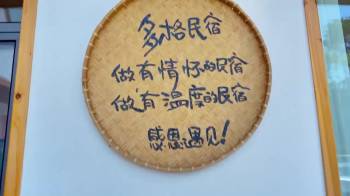 多格民宿
做有情怀的民宿
做有温度的民宿
感恩遇见！